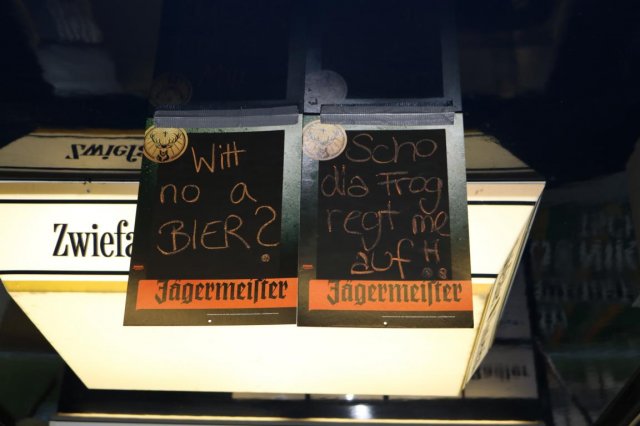 Zwiefa
Witt
no a
BIER?
Jägermeister
Scho
dia Frog
regt me
auf H
Jägermeister